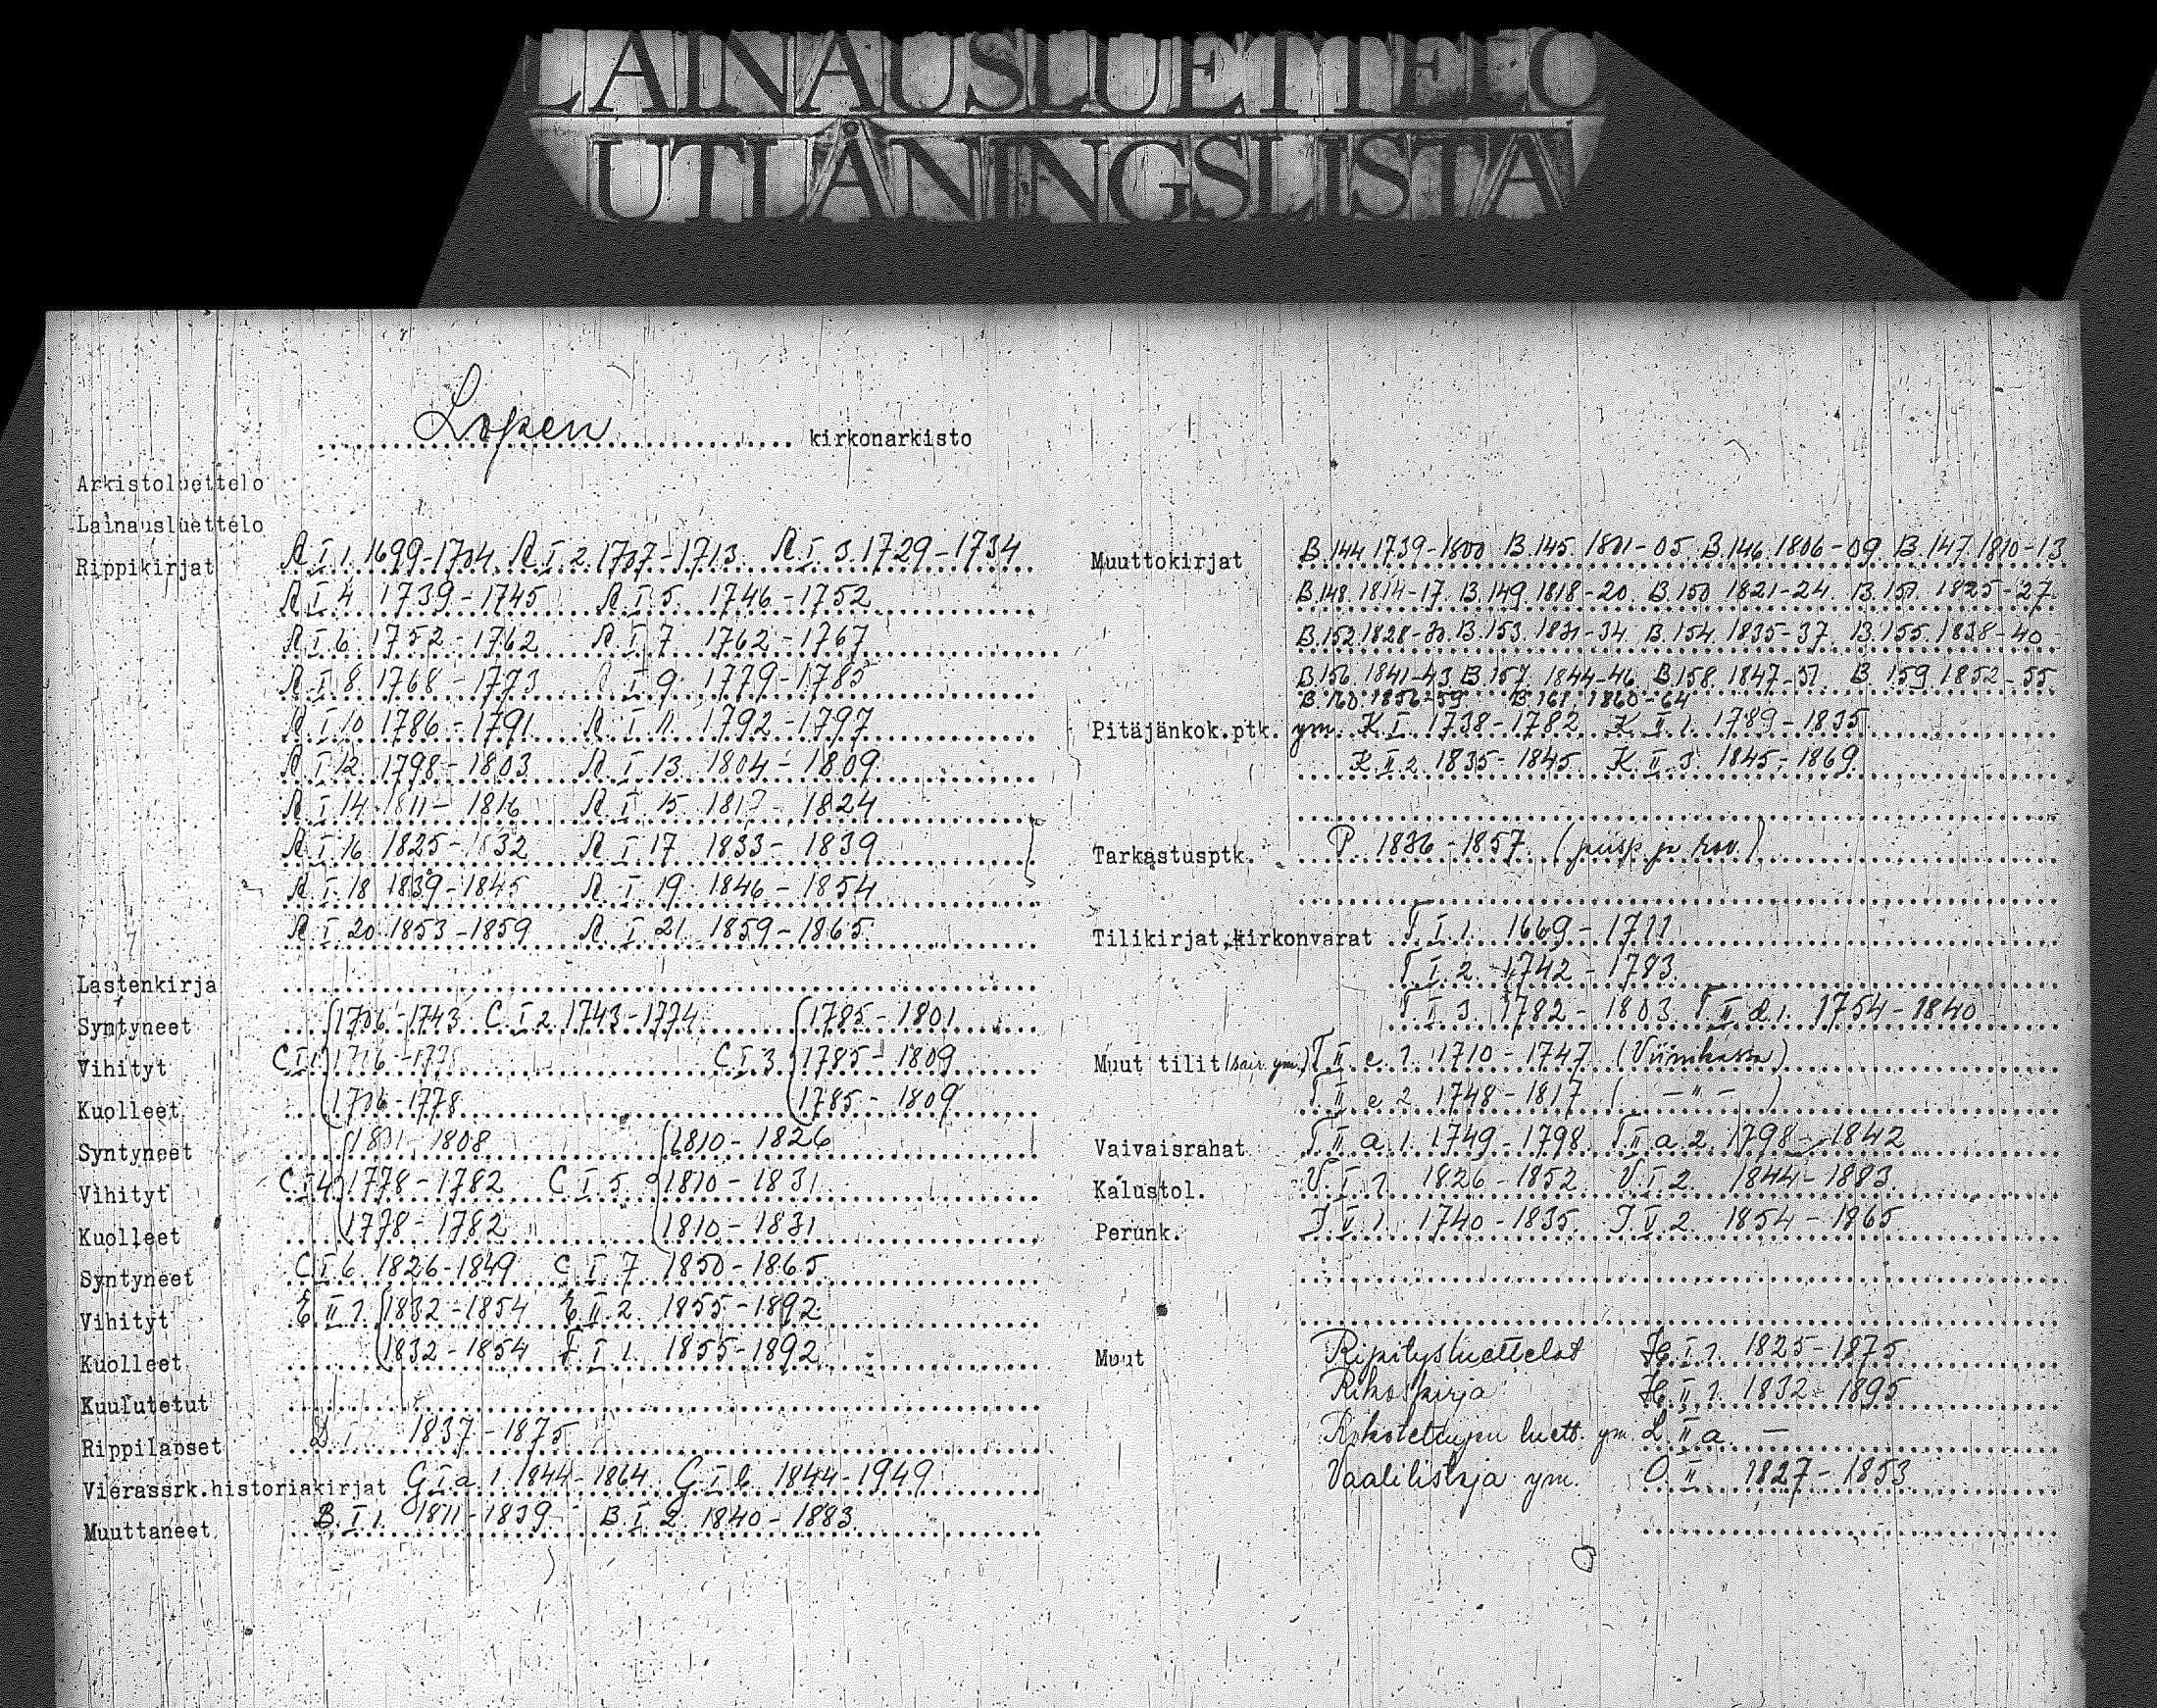 LAINAUSLUETTELO
UTLÅNINGSLISTA
Lopen kirkonarkisto
Arkistoluettelo
Lainausluettelo
Rippikirjat A.I.1. 1699-1704. A.I.2. 1707-1713. A.I.3. 1729-1734
A.I.4. 1739-1745 A.I.5. 1746-1752
A.I.6. 1752-1762 A.I.7. 1762-1767
A.I.8. 1768-1773 A.I.9. 1779-1785
A.I.10 1786-1791. A.I.11. 1792-1797
A.I.12. 1798-1803 A.I.13. 1804-1809
A.I.14. 1811-1816 A.I.15. 1817-1824
A.I.16 1825-1832 A.I.17 1833-1839
A.I.18 1839-1845 A.I.19. 1846-1854
A.I.20. 1853-1859 A.I.21. 1859-1865.
Lastenkirja
Syntyneet 1706-1743 C.I.2. 1743-1774. 1785-1801
Vihityt C.I.1. C.I.3 1785-1809
Kuolleet 1706-1778 1785-1809
Syntyneet 1801-1808 1810-1826
Vihityt C.I.4. 1778-1782 C.I.5. 1810-1831
Kuolleet 1778-1782 1810-1831
Syntyneet C.I.6. 1826-1849 C.I.7 1850-1865
Vihityt E.II.1. 1832-1854 E.II.2. 1855-1892.
Kuolleet 1832-1854 F.I.1. 1855-1892
Kuulutetut
Rippilapset D.I. 1837-1875
Vierassrk.historiakirjat G.I.a.1. 1844-1864. G.I.b. 1844-1949
Muuttaneet B.I.1. 1811-1839 B.I.2. 1840-1883
Muuttokirjat B.144 1739-1800 B.145. 1801-05. B.146. 1806-09. B.147. 1810-13
B.148. 1814-17. B.149. 1818-20. B.150 1821-24. B.151. 1825-27.
B.152. 1828-30. B.153. 1831-34. B.154. 1835-37. B.155. 1838-40
B.156. 1841-43 B.157. 1844-46. B.158. 1847-51. B.159 1852-55.
B.160. 1856-59 B.161. 1860-64
Pitäjänkok.ptk. ym. K.I. 1738-1782 K.II.1. 1789-1835
K.II.2. 1835-1845 K.II.3. 1845-1869.
Tarkastusptk. P. 1836-1857. (piisp. ja rov.)
Tilikirjat, kirkonvarat T.I.1. 1669-1711
T.I.2. 1742-1783.
T.I.3. 1782-1803. T.II.d.1. 1754-1840
Muut tilit (sair. ym.) T.II.e.1. 1710-1747 (Viinikassa)
T.II.e.2. 1748-1817 ( -"- )
Vaivaisrahat T.II.a.1. 1749-1798. T.II.a.2. 1798-1842
Kalustol. U.I.1. 1826-1852 U.I.2. 1844-1883.
Perunk. J.V.1. 1740-1835. J.V.2. 1854-1865
Muut Ripitysluettelot H.I.1. 1825-1875
Rikoskirja H.II.1. 1832-1895
Rokotettujen luett. ym. L.II.a. -
Vaalilistoja ym. O.II. 1827-1853